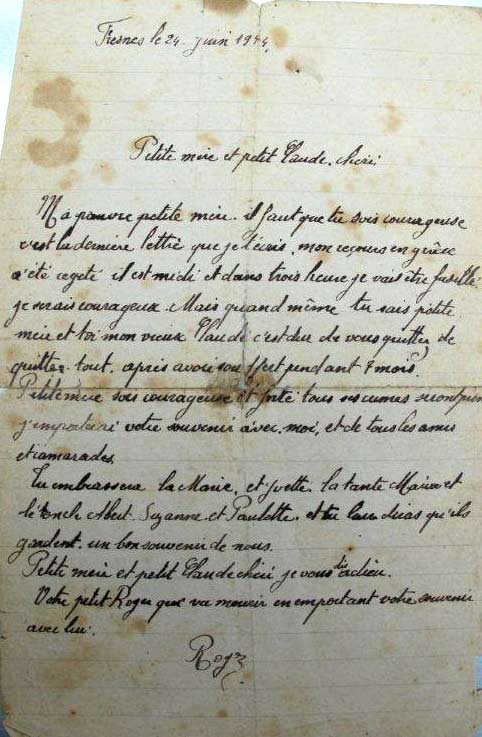 Fresnes le 24 juin 1944,
Petite mère et petit Claude. chéri
Ma pauvre petite mère. il faut que tu sois courageuse
c'est la dernière lettre que je t'écris. mon recours en grâce
a été rejeté il est midi et dans trois heure je vais être fusillé
je serais courageux. Mais quand même tu sais petite
mère et toi mon vieux Claude c'est dur de vous quitter, de
quitter tout, après avoir souffert pendant 7 mois.
Petite mère sois courageuse et forte tous ses crimes seront
j'emporterai votre souvenir avec moi, et de tous les amis
et camarades.
Tu embrassera la Marie, et Yvette. la tante Maria et
l'Oncle Albert. Suzanne et Paulette. et tu leur diras qu'ils
gardent un bon souvenir de nous.
Petite mère et petit Claude chéri je vous dis adieu.
Votre petit Roger qui va mourir en emportant votre souvenir
avec lui.
Roger